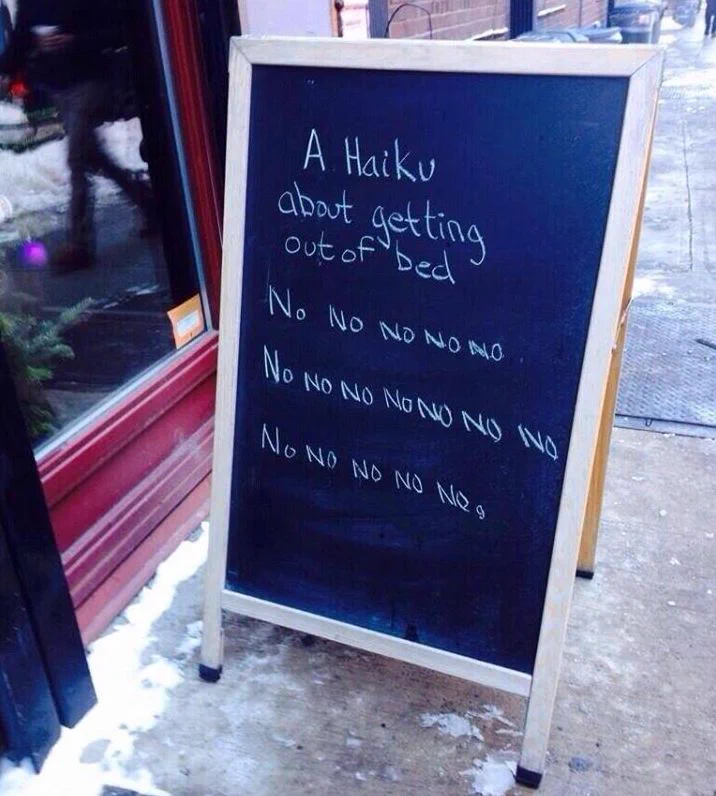 A Haiku
about getting
out of bed
No No No No No
No No No No No No No
No No No No No.